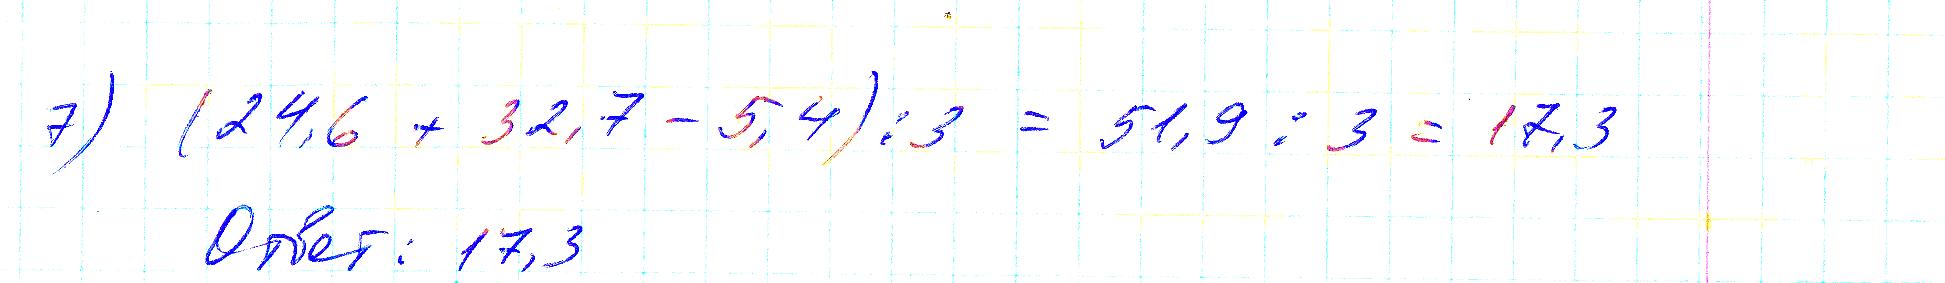 7) (24,6 + 32,7 - 5,4) : 3 = 51,9 : 3 = 17,3
Ответ: 17,3